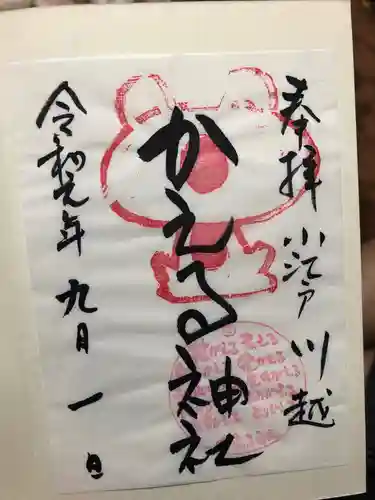 奉拝 小江戸 川越
かえる神社
令和元年九月一日